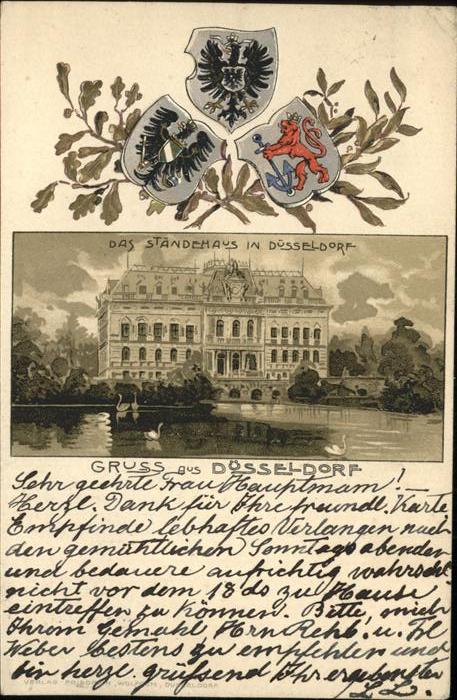 DAS STÄNDEHAUS IN DÜSSELDORF
GRUSS aus DÜSSELDORF
Sehr geehrte Frau Hauptmann! —
Herzl. Dank für Ihre freundl. Karte
Empfinde lebhaftes Verlangen nach
den gemühtlichen Sonntagsabenden
und bedauere aufrichtig wahrschl
nicht vor dem 18 ds zu Hause
eintreffen zu können. Bitte, mich
Ihrem Gemahl Hrn Rehb. u. Frl
Weber bestens zu empfehlen und
bin herzl. grüßend Ihr ergebenster
VERLAG FRIEDRICH WOLFRUM, DÜSSELDORF